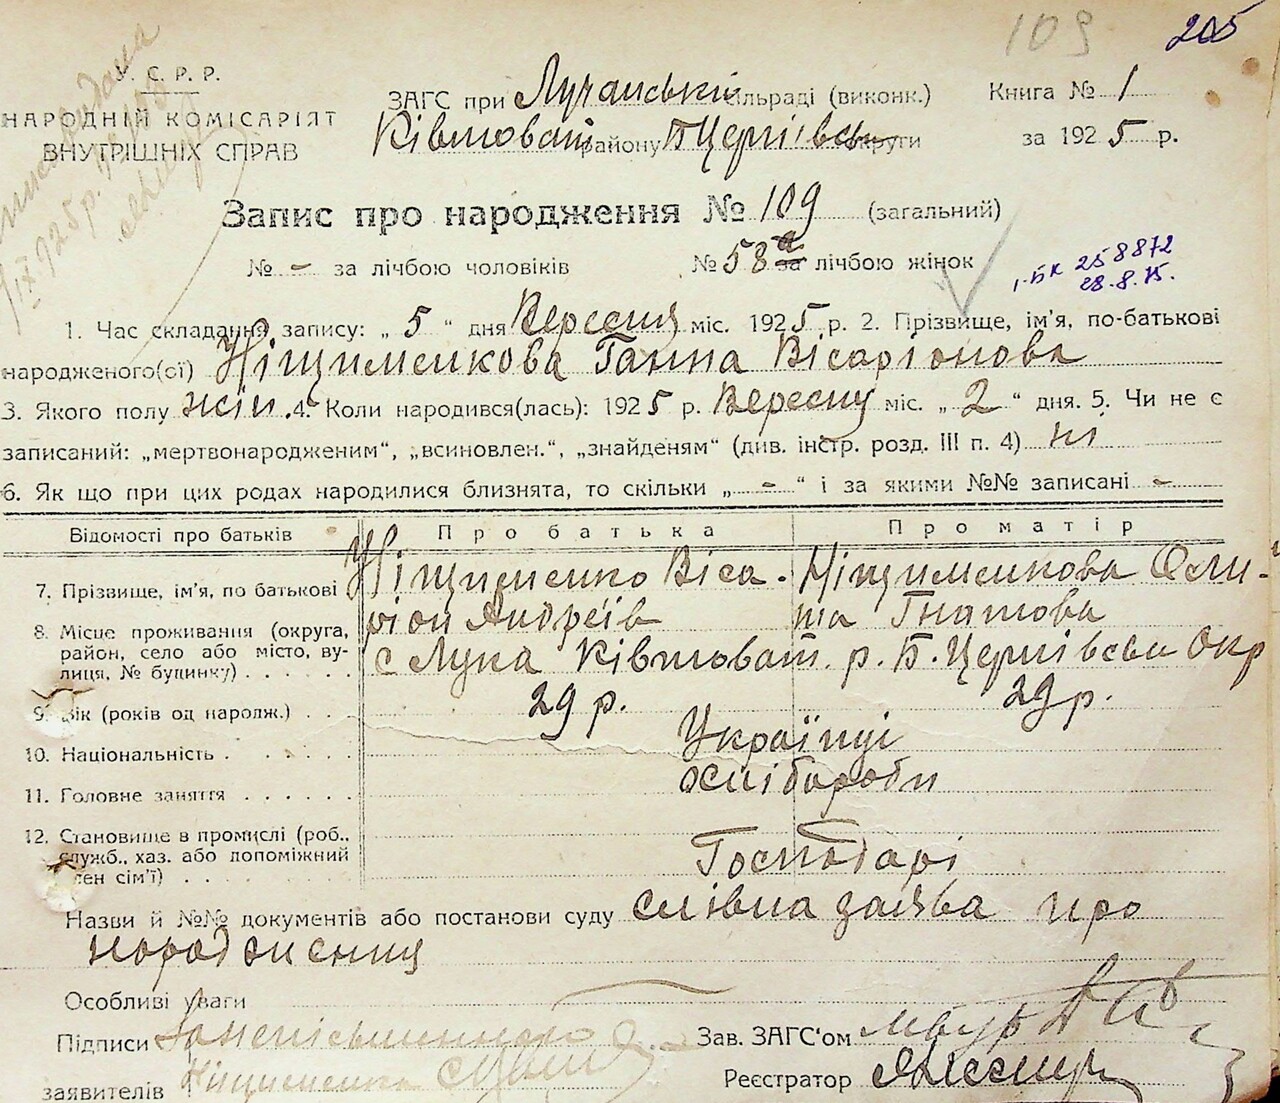 109 205
У. С. Р. Р.
НАРОДНІЙ КОМІСАРІЯТ
ВНУТРІШНІХ СПРАВ
ЗАГС при Лучанській сільраді (виконк.)
Ківшоват. району Б Церківськ округи
Книга № 1
за 1925 р.
Запис про народження № 109 (загальний)
№ - за лічбою чоловіків № 58 а за лічбою жінок
І-БК 258872
28.8.75.
1. Час складання запису: „ 5 “ дня Вересня міс. 1925 р. 2. Прізвище, ім'я, по-батькові
народженого(ої) Ніщименкова Ганна Вісаріонова
3. Якого полу жін. 4. Коли народився(лась): 1925 р. Вересня міс. „ 2 “ дня. 5. Чи не є
записаний: „мертвонародженим“, „всиновлен.“, „знайденям“ (див. інстр. розд. III п. 4) ні
6. Як що при цих родах народилися близнята, то скільки „ - “ і за якими №№ записані -
Відомості про батьків Про батька Про матір
7. Прізвище, ім'я, по батькові Ніщименко Віса- Ніщименкова Оли-
ріон Андреїв та Гнатова
8. Місце проживання (округа,
район, село або місто, ву-
лиця, № будинку) с Лука Ківшоват. р. Б. Церківськ Окр
9. Вік (років од народж.) 29 р. 29 р.
10. Національність Українці
11. Головне заняття хлібороби
12. Становище в промислі (роб.,
служб., хаз. або допоміжний
член сім'ї) Господарі
Назви й №№ документів або постанови суду слівна заява про
народження
Особливі уваги
Підписи
Зав. ЗАГС'ом
заявителів Ніщименко
Реєстратор